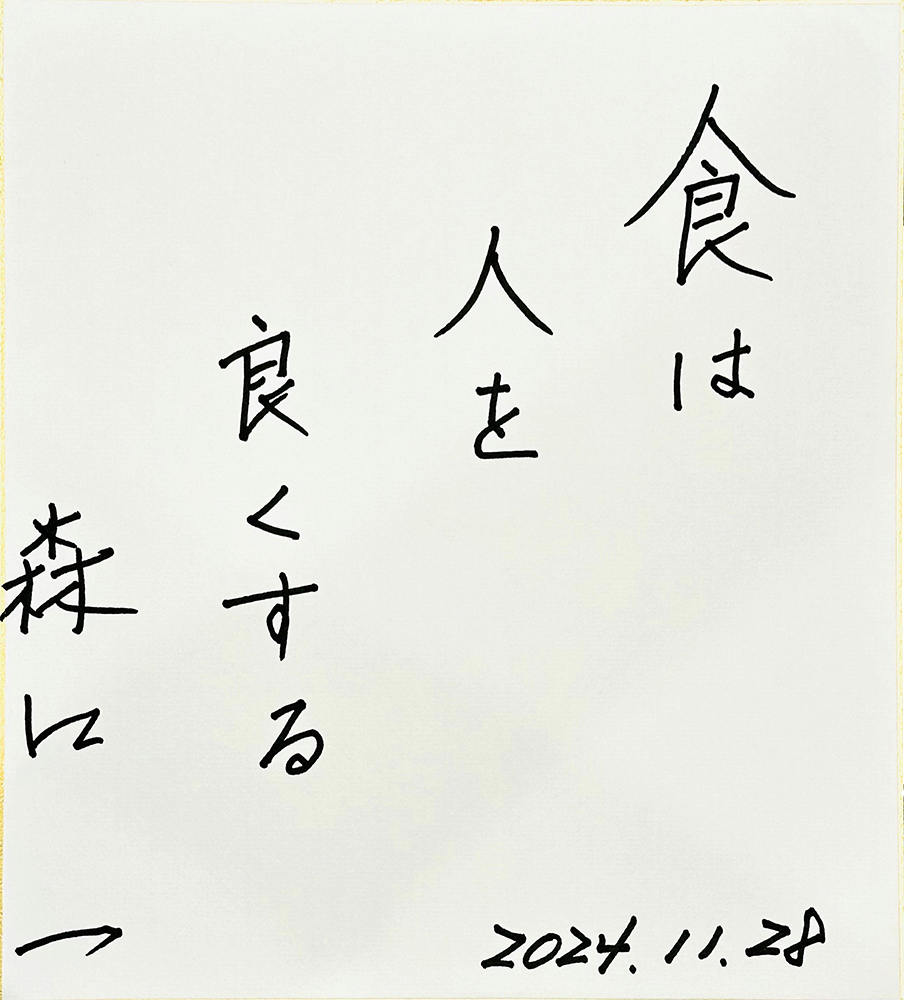 食は
人を
良くする
森口
一
2024.11.28